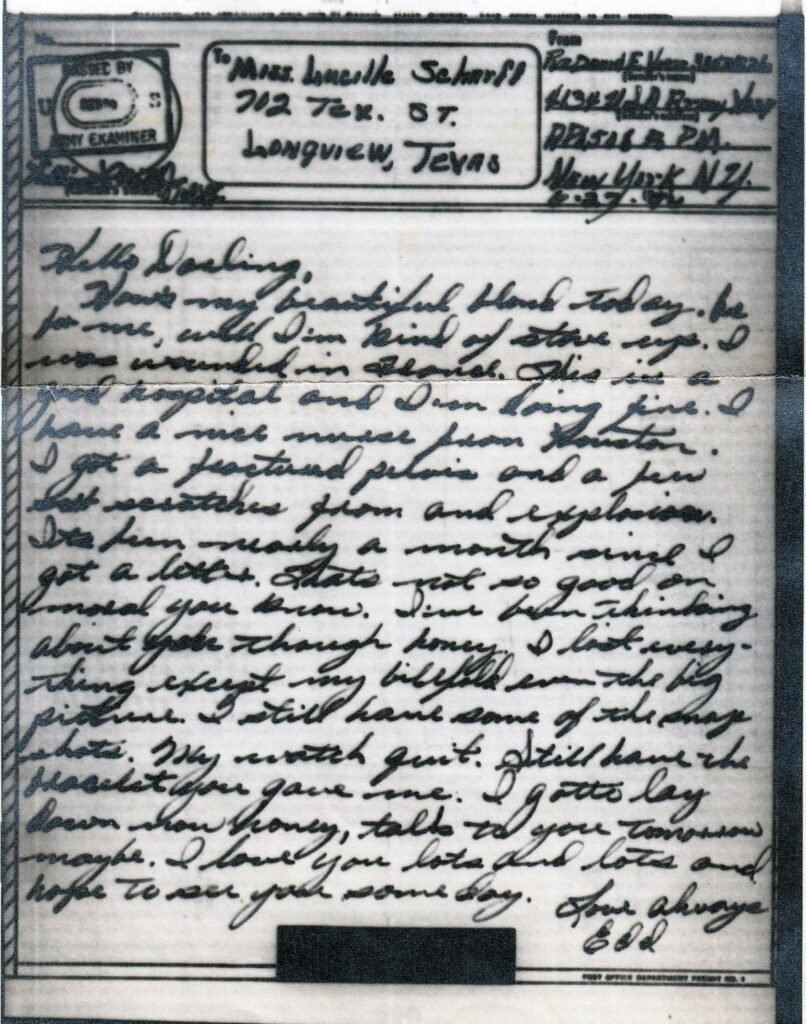 No.
PASSED BY
U S
ARMY EXAMINER
To
Miss. Lucille Scharff
702 Tex. ST.
Longview, Texas
From
APO 518 % P.M.
New York N.Y.
Hello Darling,
How's my beautiful blond today. As
for me, well I'm kind of stove up. I
was wounded in France. This is a
good hospital and I'm doing fine. I
have a nice nurse from Houston.
I got a fractured pelvis and a few
scratches from and explosion.
Its been nearly a month since I
got a letter. Thats not so good on
moral you know. I've been thinking
about you though honey. I lost every-
thing except my billfold even the big
picture. I still have some of the snap
shots. My watch quit. Still have the
bracelet you gave me. I gotta lay
down now honey, talk to you tomorrow
maybe. I love you lots and lots and
hope to see you some day.
Love always
Edd
POST OFFICE DEPARTMENT PERMIT NO.